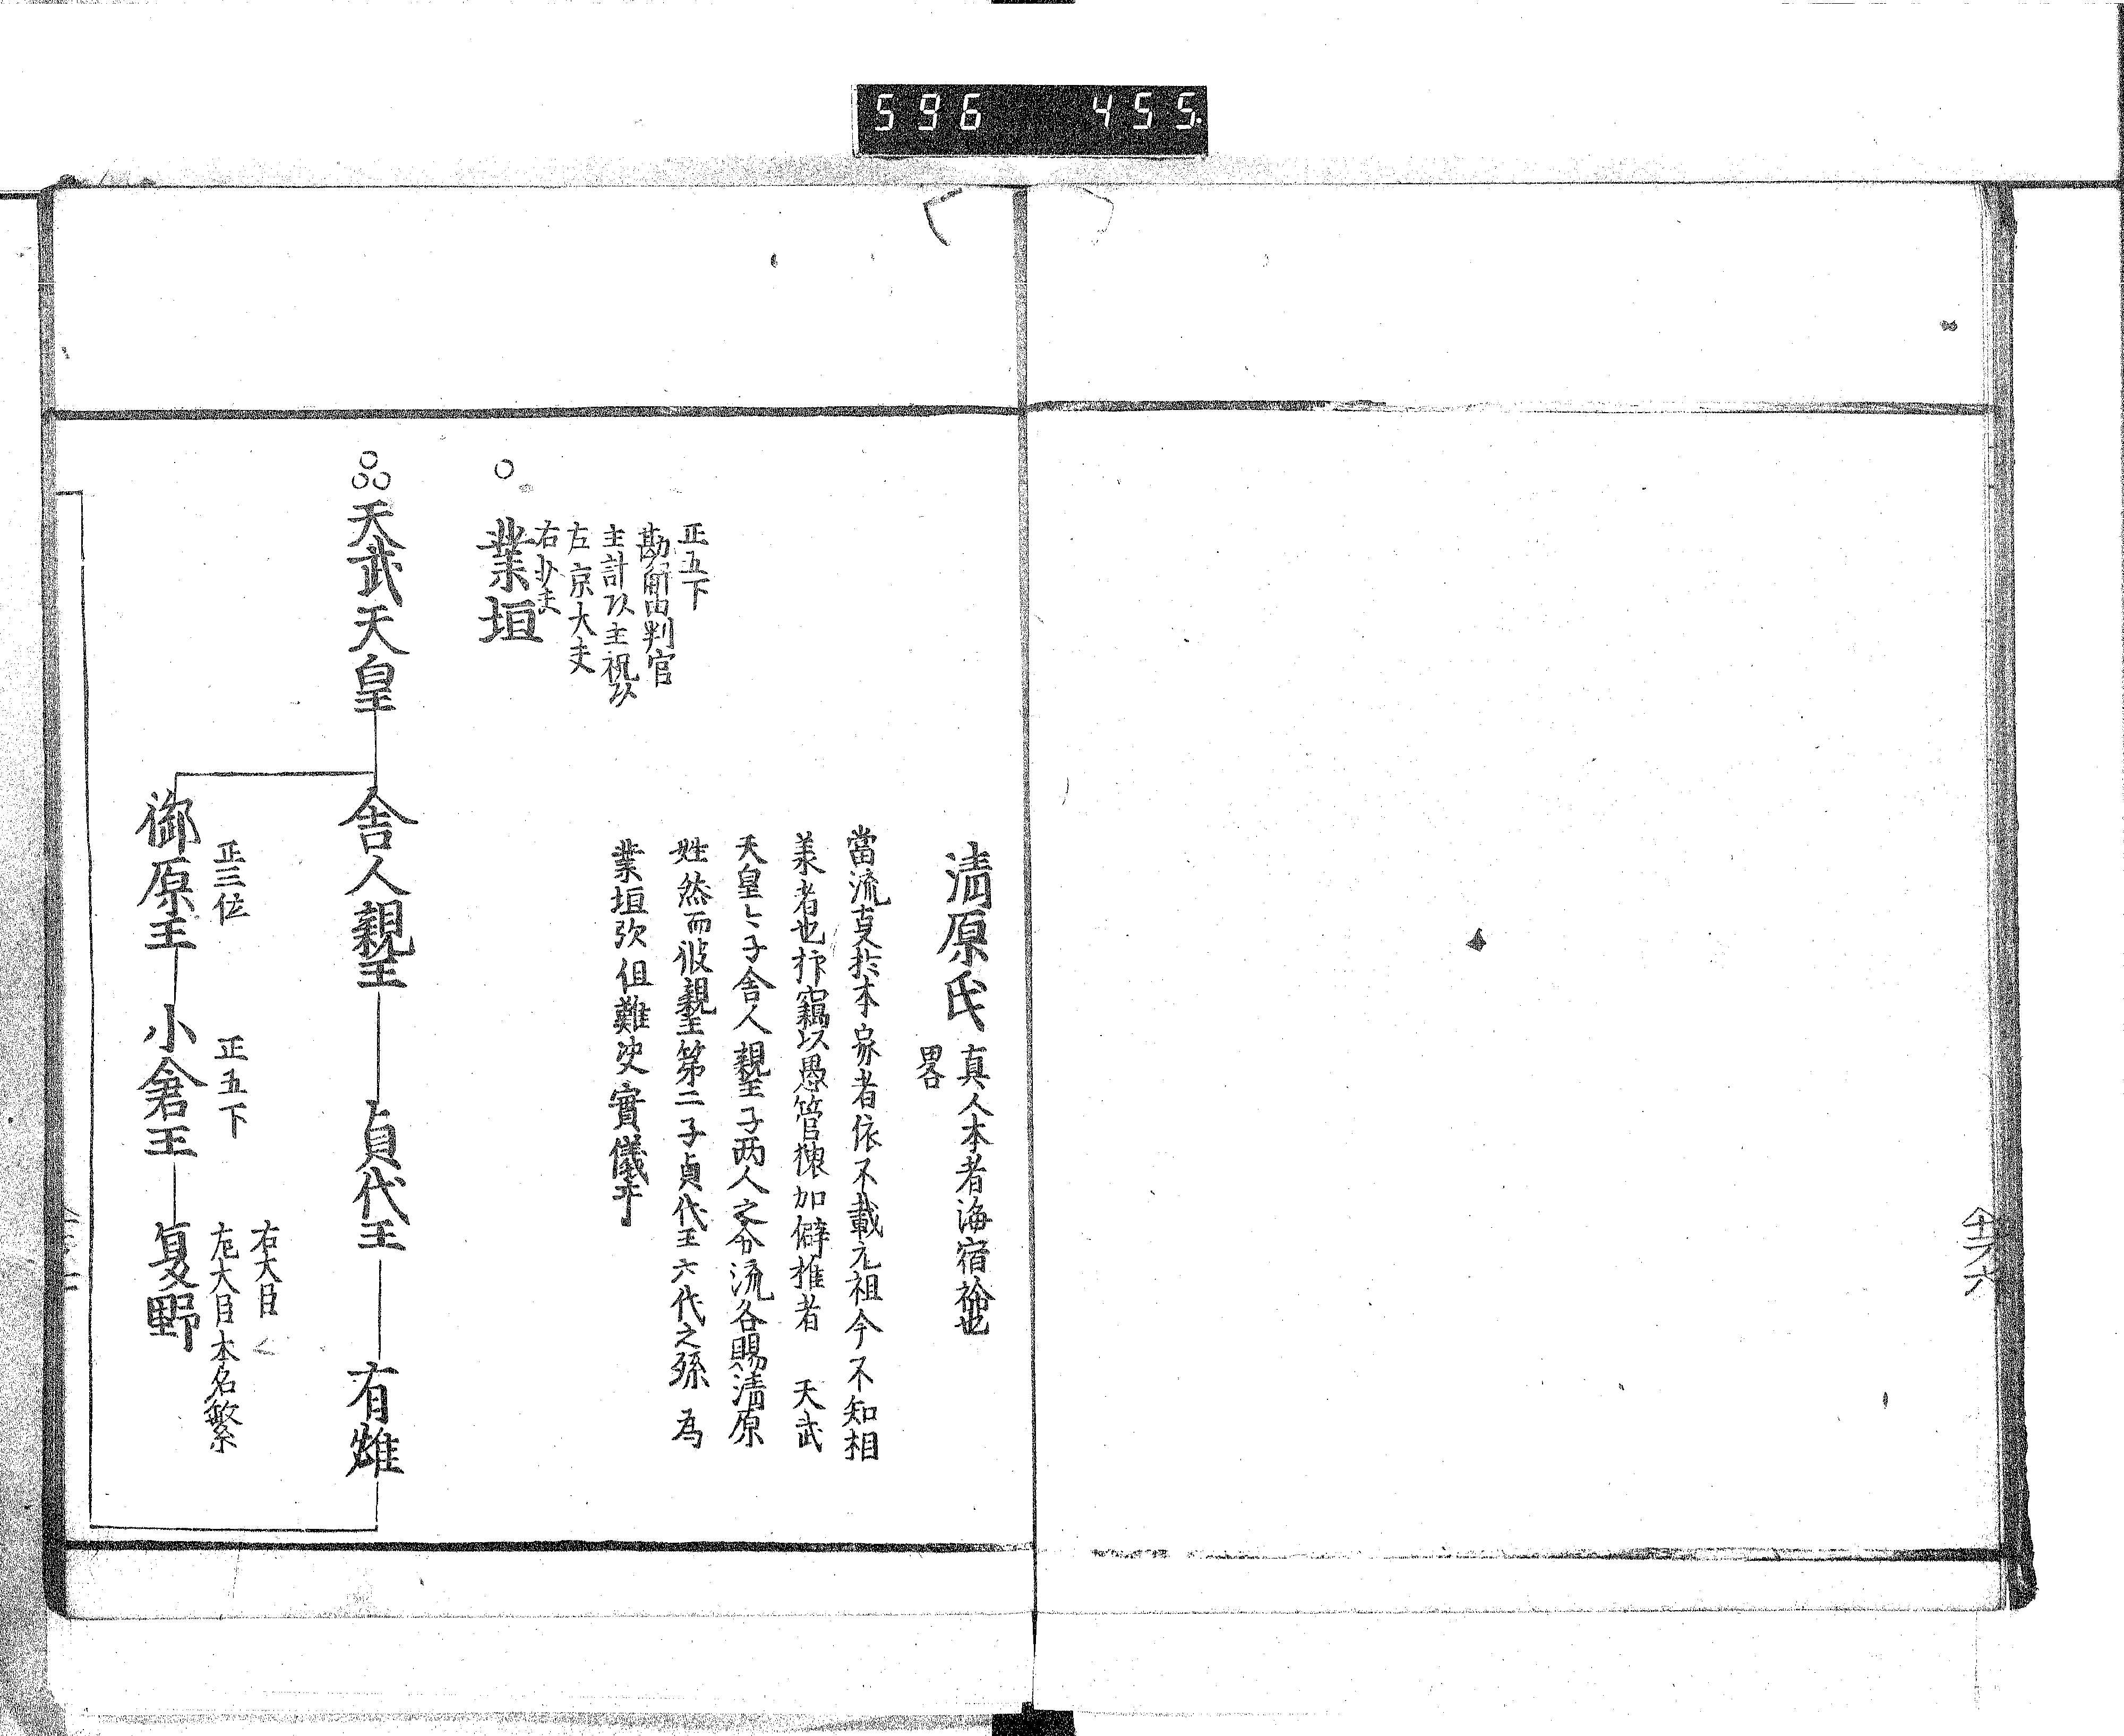 596 455.
清原氏 真人本者海宿祢也
畧
當流支於本家者依不載元祖今不知相
美者也抑竊以愚管椋加僻推者 天武
天皇々子舎人親王子両人之分流各賜清原
姓然而彼親王第二子貞代王六代之孫 為
業垣欤但難决實儀乎
正五下
勘解由判官
主計以主税以
左京大夫
右少史
○ 業垣
天武天皇 舎人親王 貞代王 有雄
正三位 正五下
右大目
左大目本名繁
御原王 小倉王 夏野